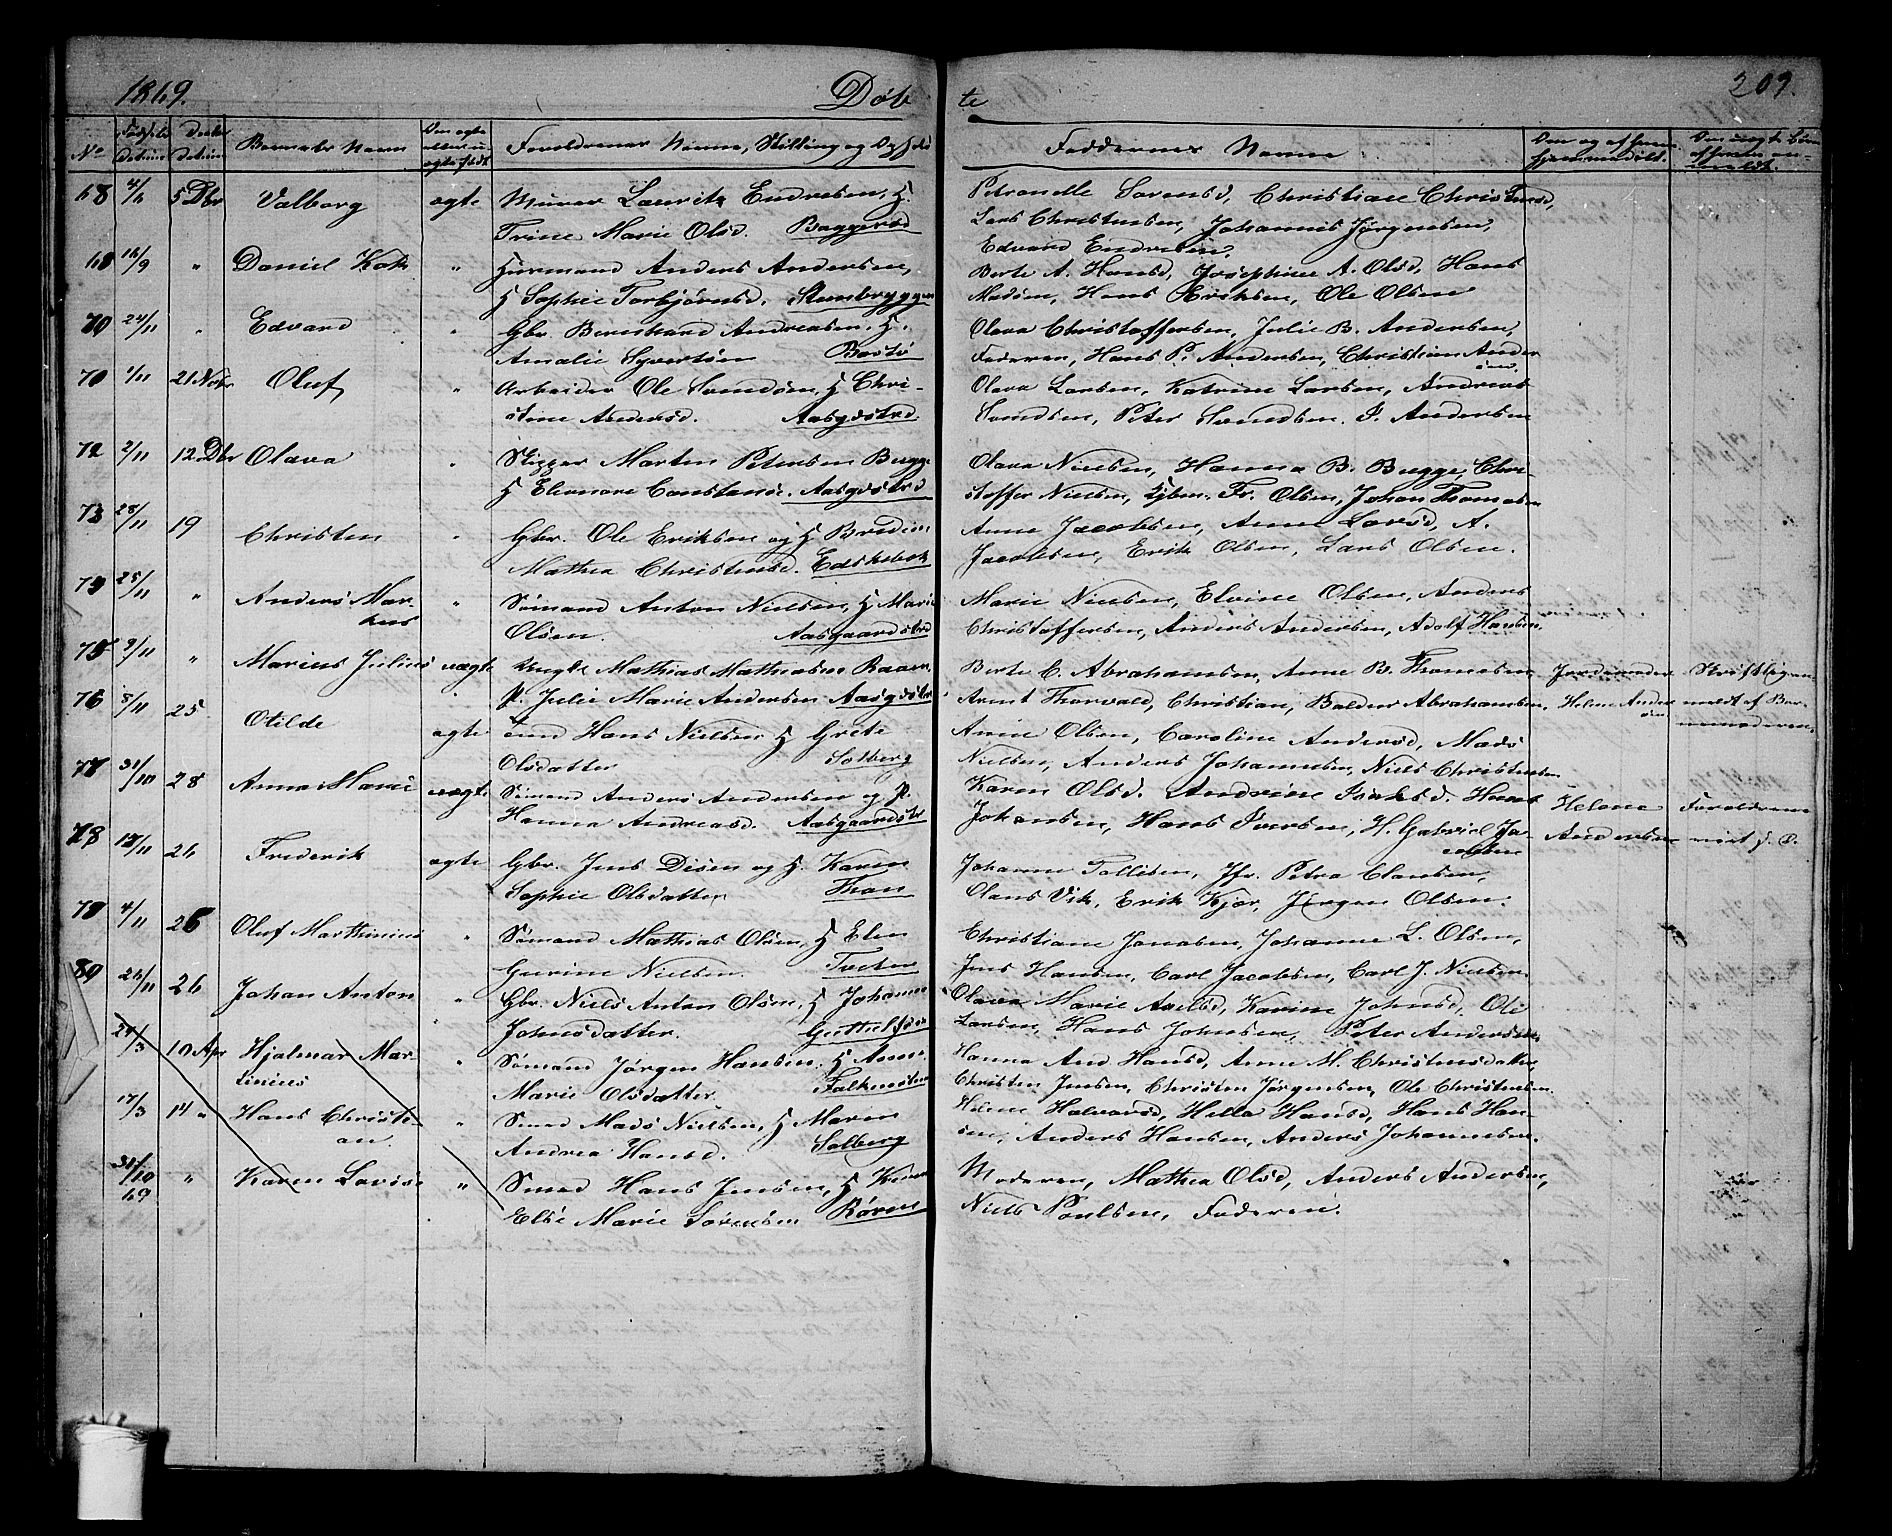 1869.
Døb
te
209.
No
Fødsels
Datum
Daabs
Datum
Barnets Navn
Den ægte
eller u-
ægte født
Forældrenes Navne, Stilling og Ophold
Faddernes Navne
68 4/6 5 Dbr Valborg ægte Murer Lauritz Endresen, H.
Trine Marie Olsd. Baggerød
Petronelle Sørensd, Christiane Christensd,
Lars Christensen, Johannes Jørgensen,
Edvard Endresen.
68 16/9 " Daniel Kok " Huusmand Anders Andersen,
H Sophie Torbjørnsd. Steenbryggen
Berte A. Hansd, Josephine A. Olsd, Hans
Madsen, Hans Eriksen, Ole Olsen
70 24/11 " Edvard " Gbr. Bernhard Andreasen, H.
Amalie Syvertsen Bastø
Olava Christoffersen, Julie B. Andersen,
Faderen, Hans P. Andersen, Christian Ander
sen.
70 1/11 21 Nobr Oluf " Arbeider Ole Svendsen, H Chri-
stine Andersd. Aasgdstrd.
Olava Larsen, Katrine Larsen, Andreas
Svendsen, Peter Svendsen. P. Andersen
72 2/11 12 Dbr Olava " Skipper Morten Petersen Bugge
H Eleonore Constanse. Aasgdstrd
Olava Nielsen, Hanna B. Bugge, Chri-
stoffer Nielsen, Kjbm. Fr. Olsen, Johan Thomesen
73 28/11 19 Christen " Gbr. Ole Eriksen og H Bredine
Mathea Christensd. Edskebek
Anne Jacobsen, Anne Larsd, A.
Jacobsen, Erik Olsen, Lars Olsen.
79 25/11 " Anders Mar-
kus " Sømand Anton Nielsen, H Marie
Olsen. Aasgaardstrd
Marie Nielsen, Elvine Olsen, Anders
Christoffersen, Anders Andersen, Adolf Hansen,
75 9/11 " Marius Julius uægte Ungk. Mathias Mathiasen Raaen
P. Julie Marie Andersen Aasgdstrd
Berte C. Abrahamsen, Anne B. Thomesen
Arnt Thorvald, Christian, Balder Abrahamsen.
Jordemoder
Helene Ander
sen
Skriftligen
meldt af Bar-
nemoderen.
76 8/11 25 Otilde ægte Hans Nielsen H Grete
Olsdatter Solberg
Anne Olsen, Caroline Andersd, Mads
Nielsen, Anders Johannesen, Niels Christensen
77 31/10 28 Anna Marie uægte Sømand Anders Andersen og P.
Hanna Andreasd. Aasgaardstr
Karen Olsd. Andrine Isaksd. Hans
Johansen, Hans Iversen, H. Gabriel Ja-
cobsen
Helene
Andersen
Forældrene
78 12/11 26 Frederik ægte Gbr. Jens Disen og H. Karen
Sophie Olsdatter Thon
Johanne Tollisen, Jfr. Petra Clausen,
Olaus Vik, Erik Kjær, Jørgen Olsen.
79 4/11 26 Oluf Marthinius " Sømand Mathias Olsen, H Elen
Gurine Nielsen.
Christiane Jonasen, Johanne L. Olsen,
Jens Hansen, Carl Jacobsen, Carl J. Nielsen
80 26/11 26 Johan Anton " Gbr. Niels Anton Olsen, H Johanne
Johnsdatter.
Olava Marie Axelsd, Karine Johnsd, Ole
Larsen, Hans Johnsen, Peter Andersen
24/3 10 Apr Hjalmar Mar-
tinius " Sømand Jørgen Hansen, H Anne
Marie Olsdatter. Falkensten
Hanna And Hansd, Anne M. Christensdatter,
Christen Jensen, Christen Jørgensen, Ole Christensen
17/3 14 " Hans Christi-
an. " Smed Mads Nielsen, H Maren
Andrea Hansd. Solberg
Helene Halvorsd, Hella Hansd, Hans Han-
sen, Anders Hansen, Anders Johannesen.
31/10
69 " Karen Lovise " Smed Hans Jensen, H Karen
Else Marie Sørensen Røren
Moderen, Mathea Olsd, Anders Andersen,
Niels Poulsen, Faderen.